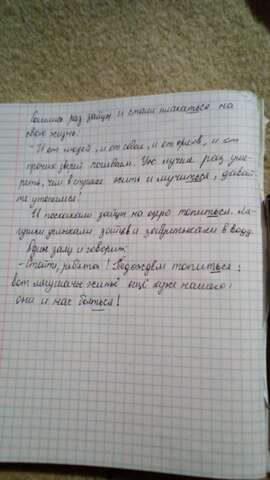 раз зайцы и стали плакаться на
свою жизнь.
- И от людей, и от собак, и от орлов, и от
прочих зверей погибаем. Уж лучше раз уме-
реть, чем в страхе жить и мучиться, давай-
те утопимся!
И поскакали зайцы на озеро топиться. Ля-
гушки услыхали зайцев и забултыхали в воду.
заяц и говорит:
- Стойте, ребята! Подождём топиться:
вот лягушачье житьё ещё хуже нашего:
они и нас бояться!